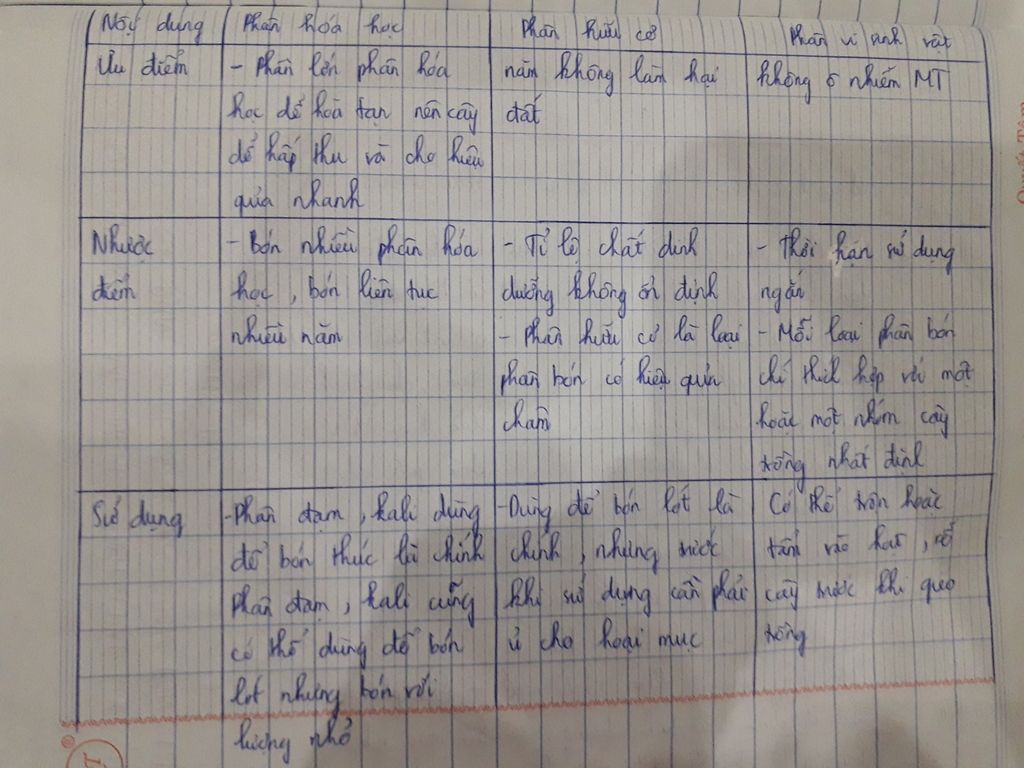 Nội dung
Phân hóa học
Phân hữu cơ
Phân vi sinh vật
Ưu điểm
- Phần lớn phân hóa
học dễ hòa tan nên cây
dễ hấp thu và cho hiệu
quả nhanh
năm không làm hại
đất
không ô nhiễm MT
Nhược
điểm
- Bón nhiều phân hóa
học, bón liên tục
nhiều năm
- Tỉ lệ chất dinh
dưỡng không ổn định
- Phân hữu cơ là loại
phân bón có hiệu quả
chậm
- Thời hạn sử dụng
ngắn
- Mỗi loại phân bón
chỉ thích hợp với một
hoặc một nhóm cây
trồng nhất định
Sử dụng
- Phân đạm, kali dùng
để bón thúc là chính
Phân đạm, kali cũng
có thể dùng để bón
lót nhưng bón với
lượng nhỏ
- Dùng để bón lót là
chính, nhưng trước
khi sử dụng cần phải
ủ cho hoai mục
Có thể trộn hoặc
tẩm vào hạt, rễ
cây trước khi gieo
trồng